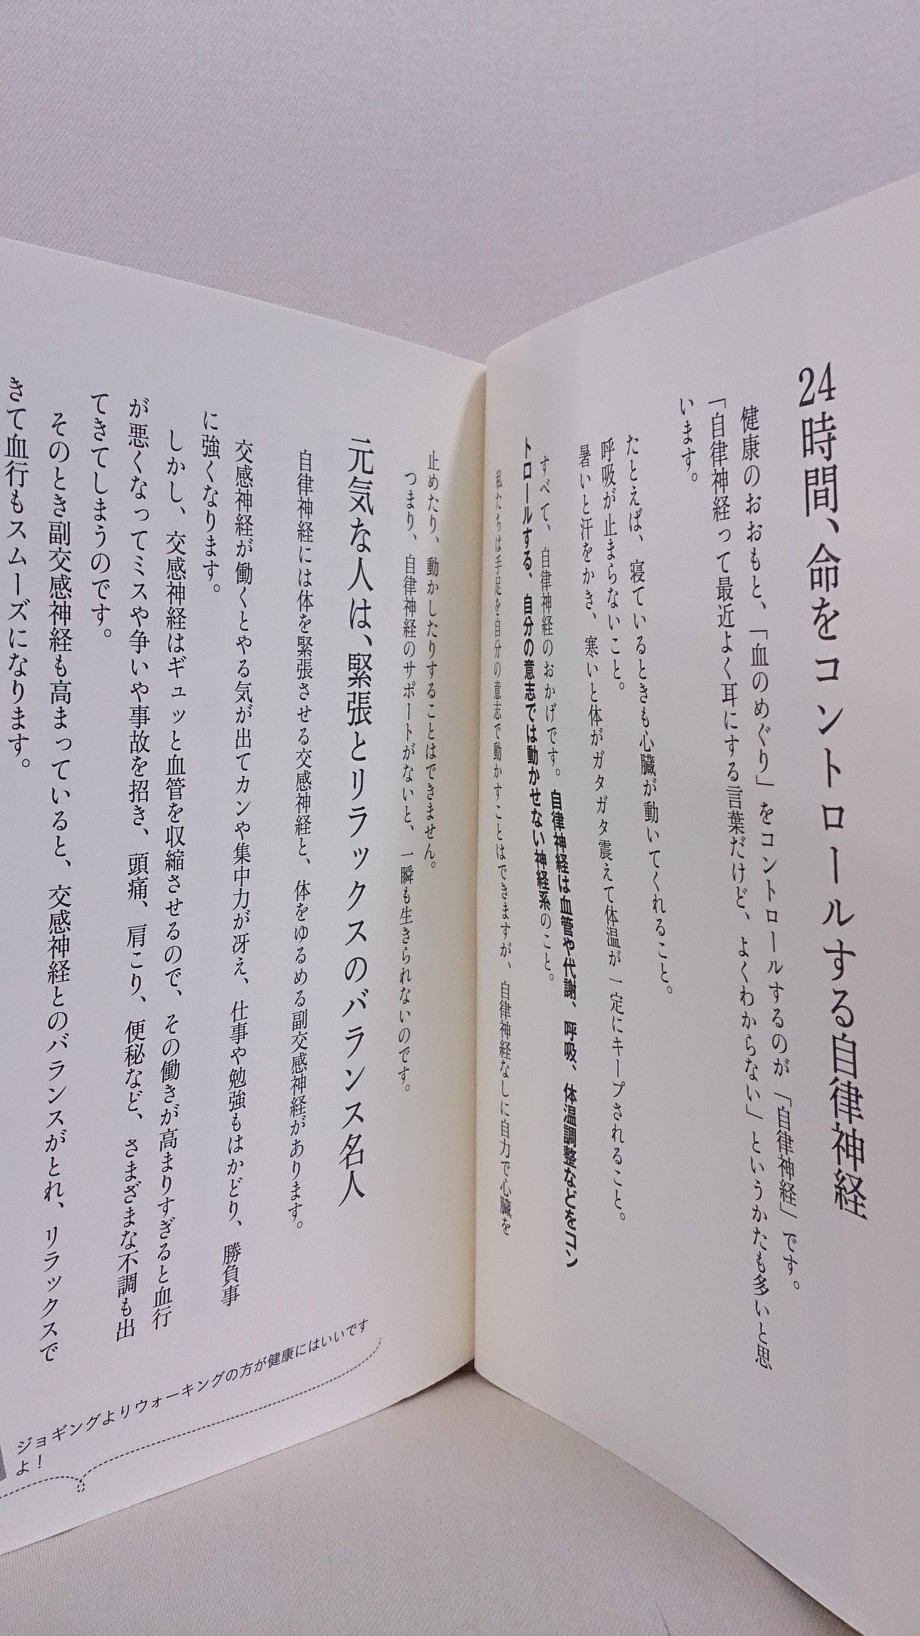 24時間、命をコントロールする自律神経
健康のおおもと、「血のめぐり」をコントロールするのが「自律神経」です。
「自律神経って最近よく耳にする言葉だけど、よくわからない」というかたも多いと思
います。
たとえば、寝ているときも心臓が動いてくれること。
呼吸が止まらないこと。
暑いと汗をかき、寒いと体がガタガタ震えて体温が一定にキープされること。
すべて、自律神経のおかげです。自律神経は血管や代謝、呼吸、体温調整などをコン
トロールする、自分の意志では動かせない神経系のこと。
私たちは手足を自分の意志で動かすことはできますが、自律神経なしに自力で心臓を
止めたり、動かしたりすることはできません。
つまり、自律神経のサポートがないと、一瞬も生きられないのです。
元気な人は、緊張とリラックスのバランス名人
自律神経には体を緊張させる交感神経と、体をゆるめる副交感神経があります。
交感神経が働くとやる気が出てカンや集中力が冴え、仕事や勉強もはかどり、勝負事
に強くなります。
しかし、交感神経はギュッと血管を収縮させるので、その働きが高まりすぎると血行
が悪くなってミスや争いや事故を招き、頭痛、肩こり、便秘など、さまざまな不調も出
てきてしまうのです。
そのとき副交感神経も高まっていると、交感神経とのバランスがとれ、リラックスで
きて血行もスムーズになります。
ジョギングよりウォーキングの方が健康にはいいです
よ!